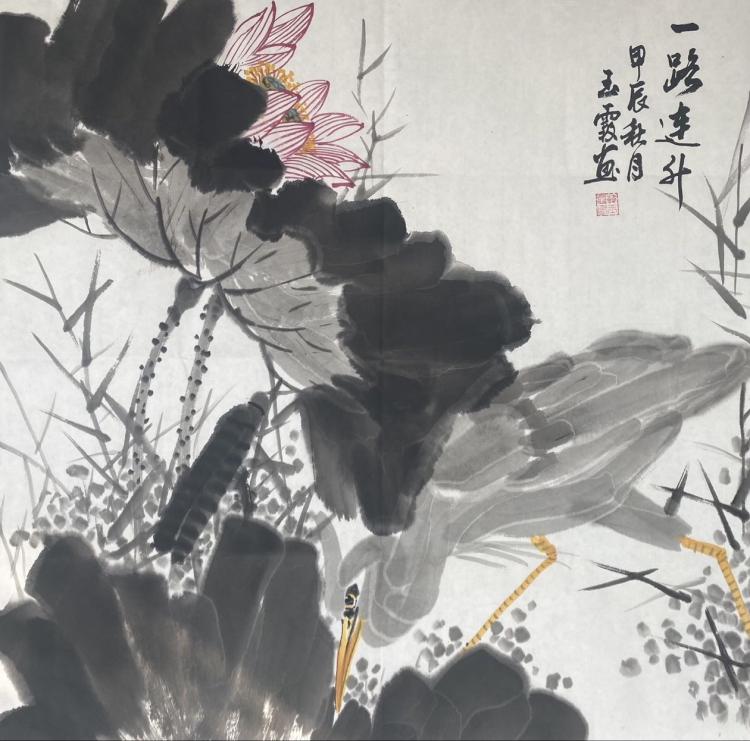 一路连升
甲辰秋月
玉霞画